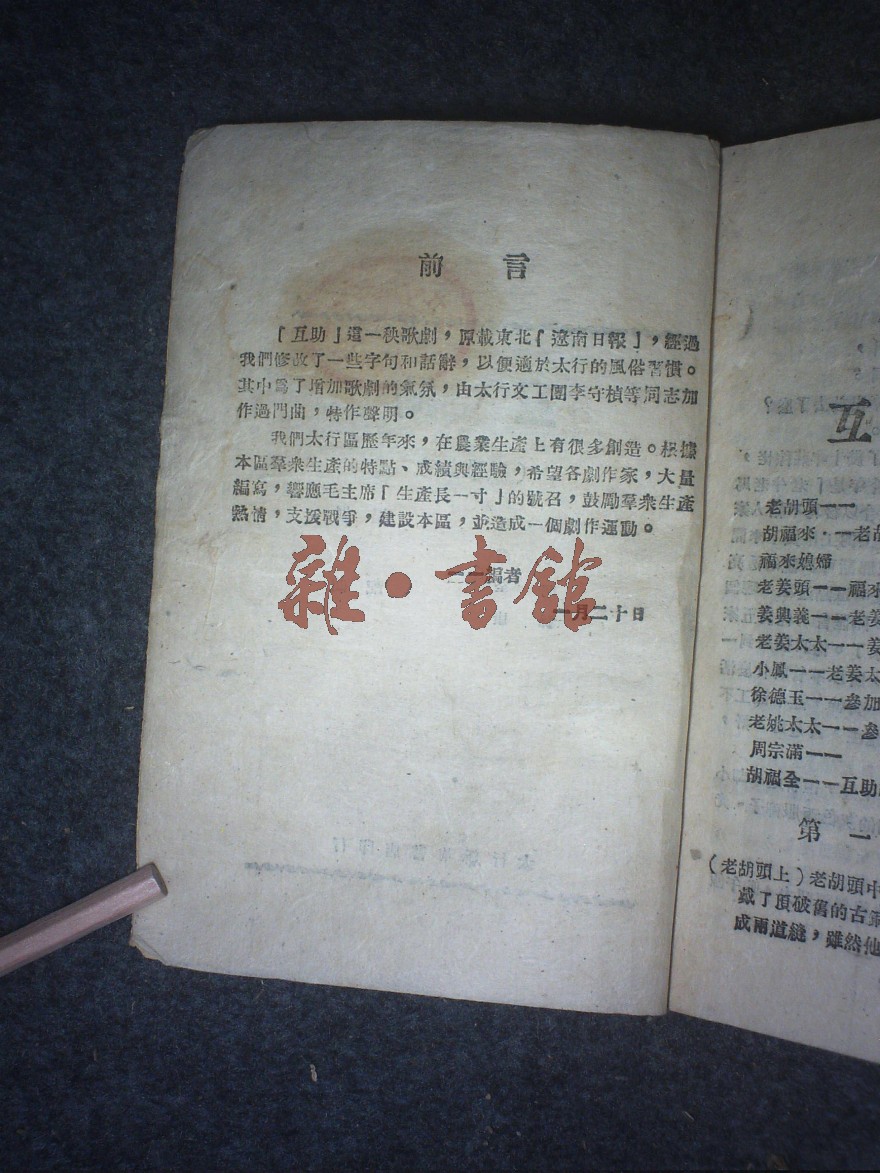 前言
「互助」這一秧歌劇，原載東北「遼南日報」，經過
我們修改了一些字句和話辭，以便適於太行的風俗習慣。
其中爲了增加歌劇的氣氛，由太行文工團李守楨等同志加
作過門曲，特作聲明。
我們太行區歷年來，在農業生產上有很多創造。根據
本區羣衆生產的特點、成績與經驗，希望各劇作家，大量
編寫，響應毛主席「生產長一寸」的號召，鼓勵羣衆生產
熱情，支援戰爭，建設本區，並造成一個劇作運動。
編者
一月二十日
雜·書館
互
老胡頭一一
胡福來·一老胡
福來媳婦
老姜頭一一福來
姜興義一一老姜
老姜太太一一姜
小鳳一一老姜太
徐德玉一一參加
老姚太太一一參
周宗滿一一
胡福全一一互助
第一
（老胡頭上）老胡頭中
戴了頂破舊的古銅
成兩道縫，雖然他